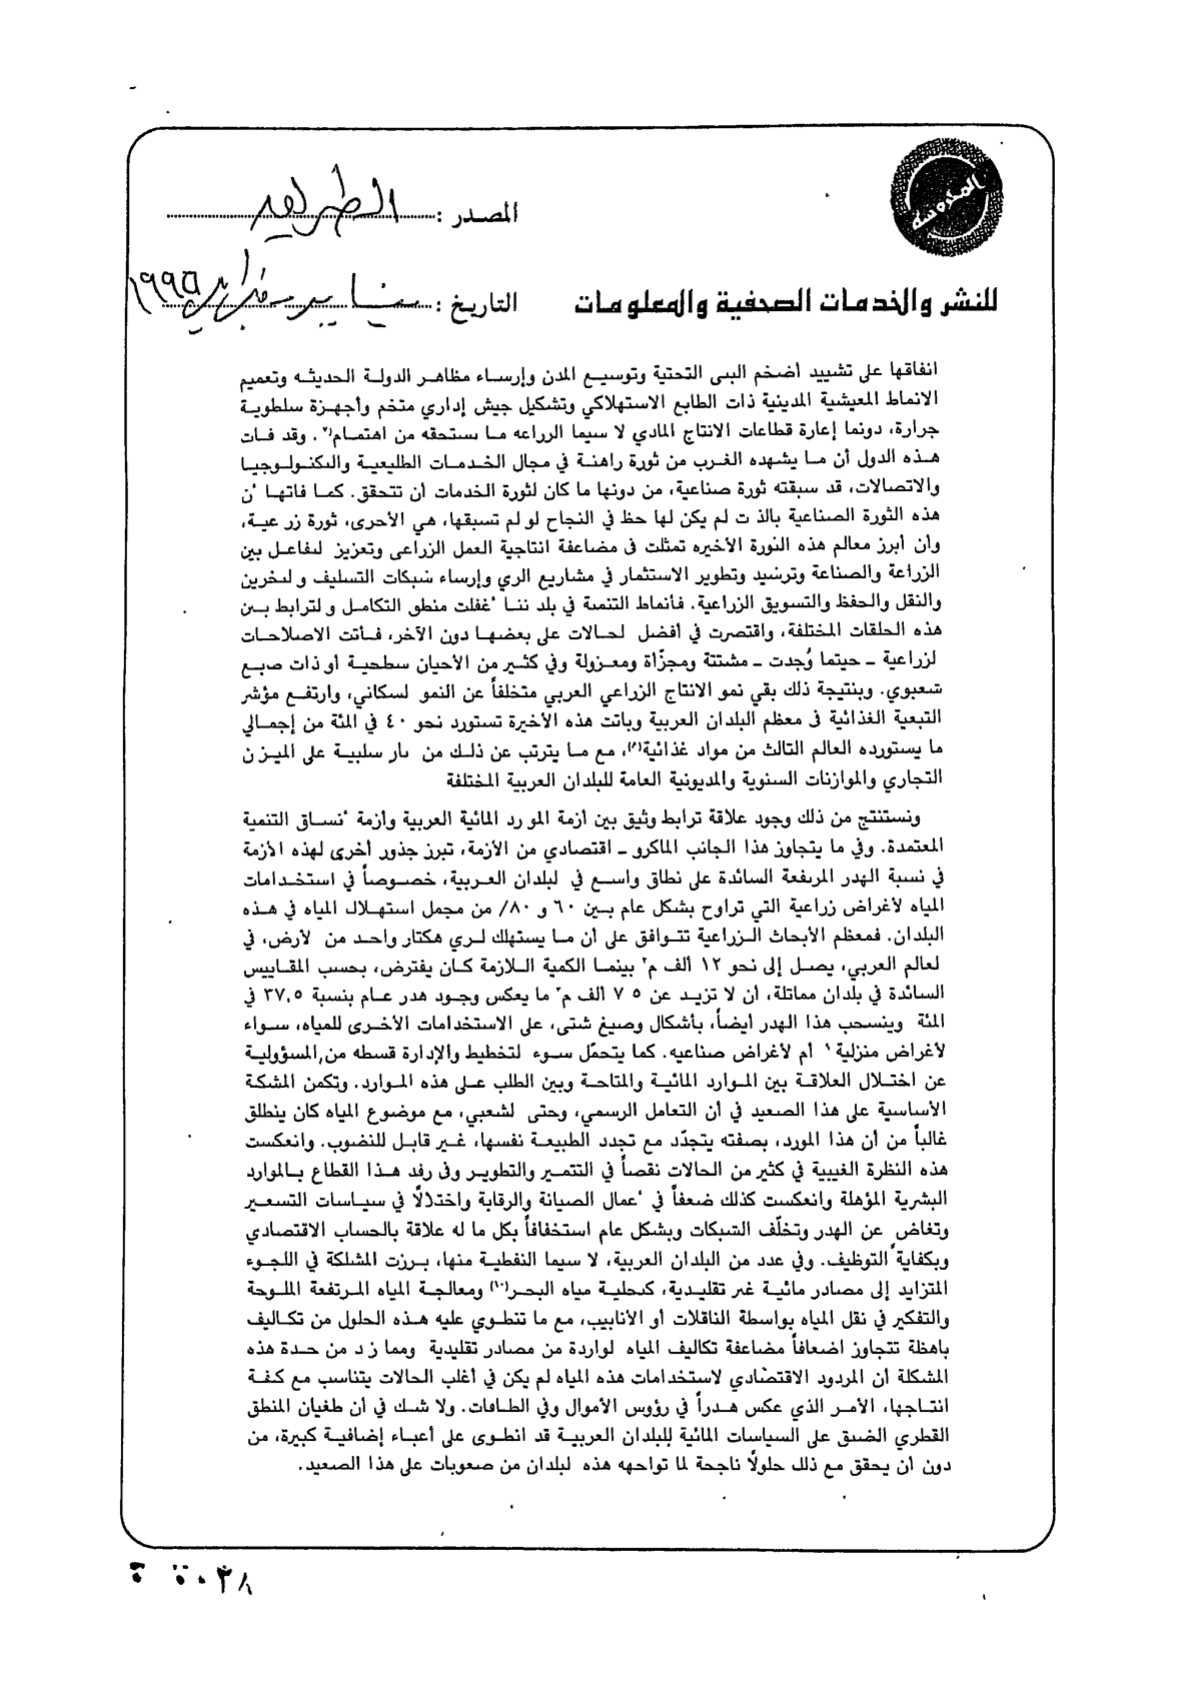 المحروسة
المصدر : الطريق
للنشر والخدمات الصحفية والمعلومات
التاريخ : يناير - فبراير ١٩٩٥
انفاقها على تشييد أضخم البنى التحتية وتوسيع المدن وإرساء مظاهر الدولة الحديثه وتعميم
الانماط المعيشية المدينية ذات الطابع الاستهلاكي وتشكيل جيش إداري متخم وأجهزة سلطوية
جرارة، دونما إعارة قطاعات الانتاج المادي لا سيما الزراعه ما ستحقه من اهتمام. وقد فات
هذه الدول أن ما يشهده الغرب من ثورة راهنة في مجال الخدمات الطليعية والتكنولوجيا
والاتصالات، قد سبقته ثورة صناعية، من دونها ما كان لثورة الخدمات أن تتحقق. كما فاتها ن
هذه الثورة الصناعية بالذ ت لم يكن لها حظ في النجاح لو لم تسبقها، هي الأحرى، ثورة زر عية،
وأن أبرز معالم هذه الثورة الأخيره تمثلت فى مضاعفة انتاجية العمل الزراعى وتعزيز لتفاعل بين
الزراعة والصناعة وترشيد وتطوير الاستثمار في مشاريع الري وإرساء شبكات التسليف و لتخزين
والنقل والحفظ والتسويق الزراعية. فأنماط التنمية في بلد ننا غفلت منطق التكامل و لترابط بين
هذه الحلقات المختلفة، واقتصرت في أفضل لحالات على بعضها دون الآخر، فأتت الاصلاحات
لزراعية ــ حيتما وُجدت ــ مشتتة ومجزّأة ومعزولة وفي كثير من الأحيان سطحية أو ذات صبع
شعبوي. وبنتيجة ذلك بقي نمو الانتاج الزراعي العربي متخلفاً عن النمو لسكاني، وارتفع مؤشر
التبعية الغذائية فى معظم البلدان العربية وباتت هذه الأخيرة تستورد نحو ٤٠ في المئة من إجمالي
ما يستورده العالم الثالث من مواد غذائية(٨)، مع ما يترتب عن ذلك من ثار سلبية على الميز ن
التجاري والموازنات السنوية والمديونية العامة للبلدان العربية المختلفة
ونستنتج من ذلك وجود علاقة ترابط وثيق بين أزمة المو رد المائية العربية وأزمة نساق التنمية
المعتمدة. وفي ما يتجاوز هذا الجانب الماكرو ــ اقتصادي من الأزمة، تبرز جذور أخرى لهذه الأزمة
في نسبة الهدر المرتفعة السائدة على نطاق واسع في لبلدان العربية، خصوصاً في استخدامات
المياه لأغراض زراعية التي تراوح بشكل عام بين ٦٠ و ٨٠/ من مجمل استهلاك المياه في هذه
البلدان. فمعظم الأبحاث الزراعية تتوافق على أن ما يستهلك لري هكتار واحد من لأرض، في
لعالم العربي، يصل إلى نحو ١٢ ألف م٣ بينما الكمية اللازمة كان يفترض، بحسب المقاييس
السائدة في بلدان مماتلة، أن لا تزيد عن ٧ ٥ ألف م٣ ما يعكس وجود هدر عام بنسبة ٣٧,٥ في
المئة وينسحب هذا الهدر أيضاً، بأشكال وصيغ شتى، على الاستخدامات الأخرى للمياه، سواء
لأغراض منزلية أم لأغراض صناعيه. كما يتحمّل سوء لتخطيط والإدارة قسطه من المسؤولية
عن اختلال العلاقة بين الموارد المائية والمتاحة وبين الطلب على هذه الموارد. وتكمن المشكة
الأساسية على هذا الصعيد في أن التعامل الرسمي، وحتى لشعبي، مع موضوع المياه كان ينطلق
غالباً من أن هذا المورد، بصفته يتجدّد مع تجدد الطبيعة نفسها، غير قابل للنضوب. وانعكست
هذه النظرة الغيبية في كثير من الحالات نقصاً في التتمير والتطوير وفى رفد هذا القطاع بالموارد
البشرية المؤهلة وانعكست كذلك ضعفاً في عمال الصيانة والرقابة واختلالًا في سياسات التسعير
وتغاض عن الهدر وتخلّف الشبكات وبشكل عام استخفافاً بكل ما له علاقة بالحساب الاقتصادي
وبكفاية التوظيف. وفي عدد من البلدان العربية، لا سيما النفطية منها، برزت المشلكة في اللجوء
المتزايد إلى مصادر مائية غير تقليدية، كتحلية مياه البحر(١٠) ومعالجة المياه المرتفعة الملوحة
والتفكير في نقل المياه بواسطة الناقلات أو الأنابيب، مع ما تنطوي عليه هذه الحلول من تكاليف
باهظة تتجاوز اضعافاً مضاعفة تكاليف المياه لواردة من مصادر تقليدية ومما ز د من حدة هذه
المشكلة أن المردود الاقتصادي لاستخدامات هذه المياه لم يكن في أغلب الحالات يتناسب مع كلفة
انتاجها، الأمر الذي عكس هدراً في رؤوس الأموال وفي الطاقات. ولا شك في أن طغيان المنطق
القطري الضيق على السياسات المائية للبلدان العربية قد انطوى على أعباء إضافية كبيرة، من
دون أن يحقق مع ذلك حلولًا ناجحة لما تواجهه هذه لبلدان من صعوبات على هذا الصعيد.